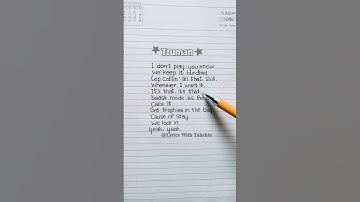 SUNDAY
Truman
I don't play, you know
We keep it hundred
Cap cappin' all that shit
Whenever I want it
It's that, it's that
beast mode as
Calls it
Got trophies in the bag
'Cause of stay
We lock in
Yeah, yeah
@Lyrics With Tabahin